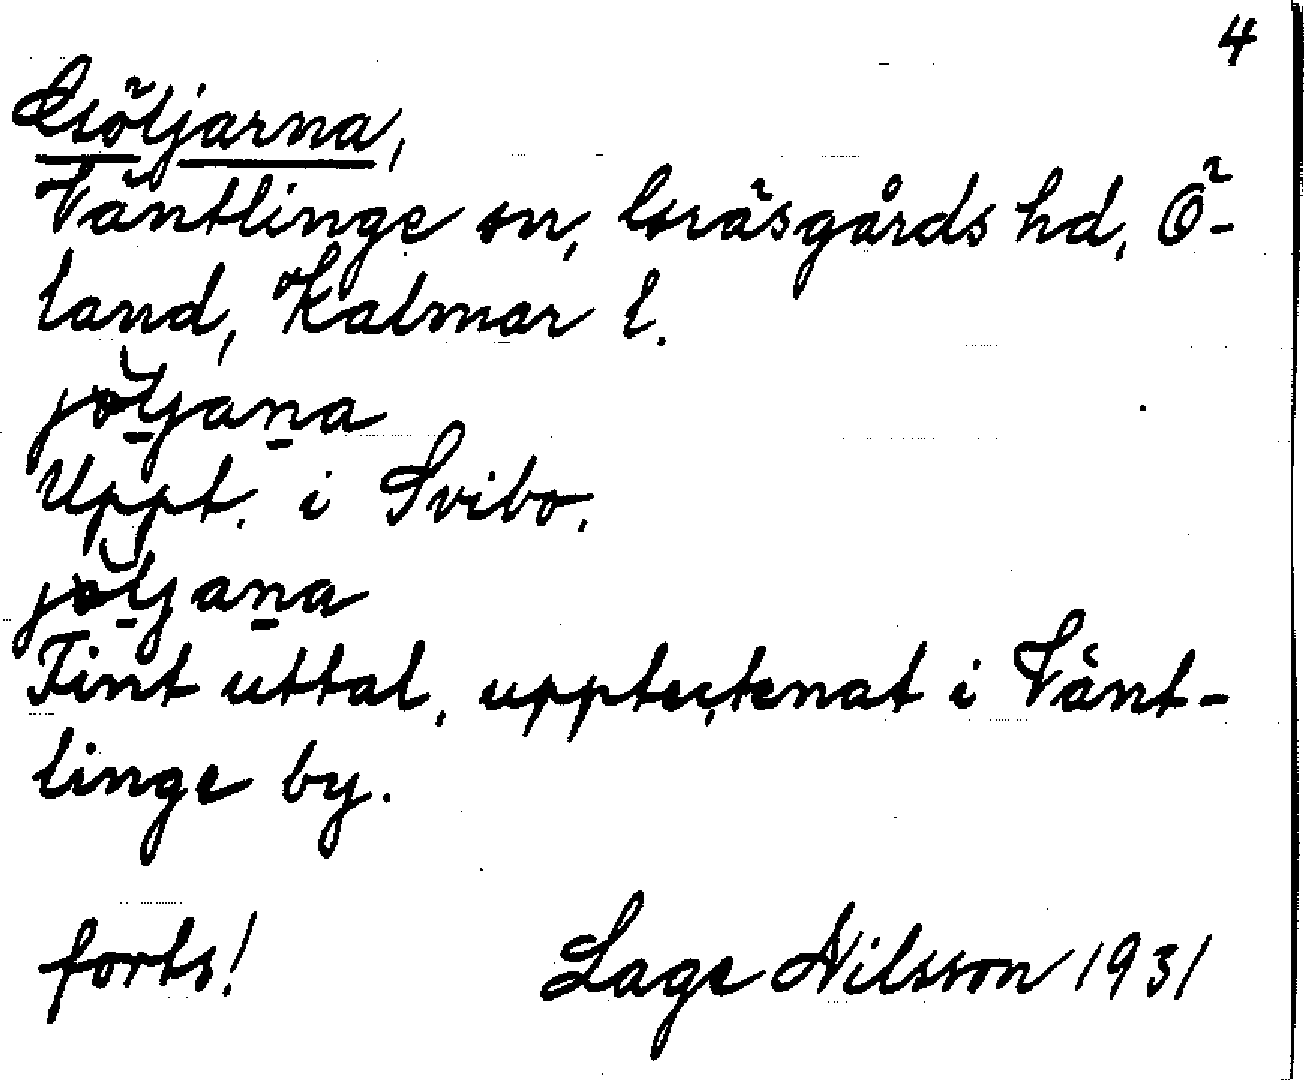 4
Göljarna,
Ventlinge sn, Gräsgårds hd, Ö-
land, Kalmar l.
jöljana
Uppt. i Svibo.
jöljana
Fint uttal, upptecknat i Vänt-
linge by.
forts! Lage Nilsson 1931